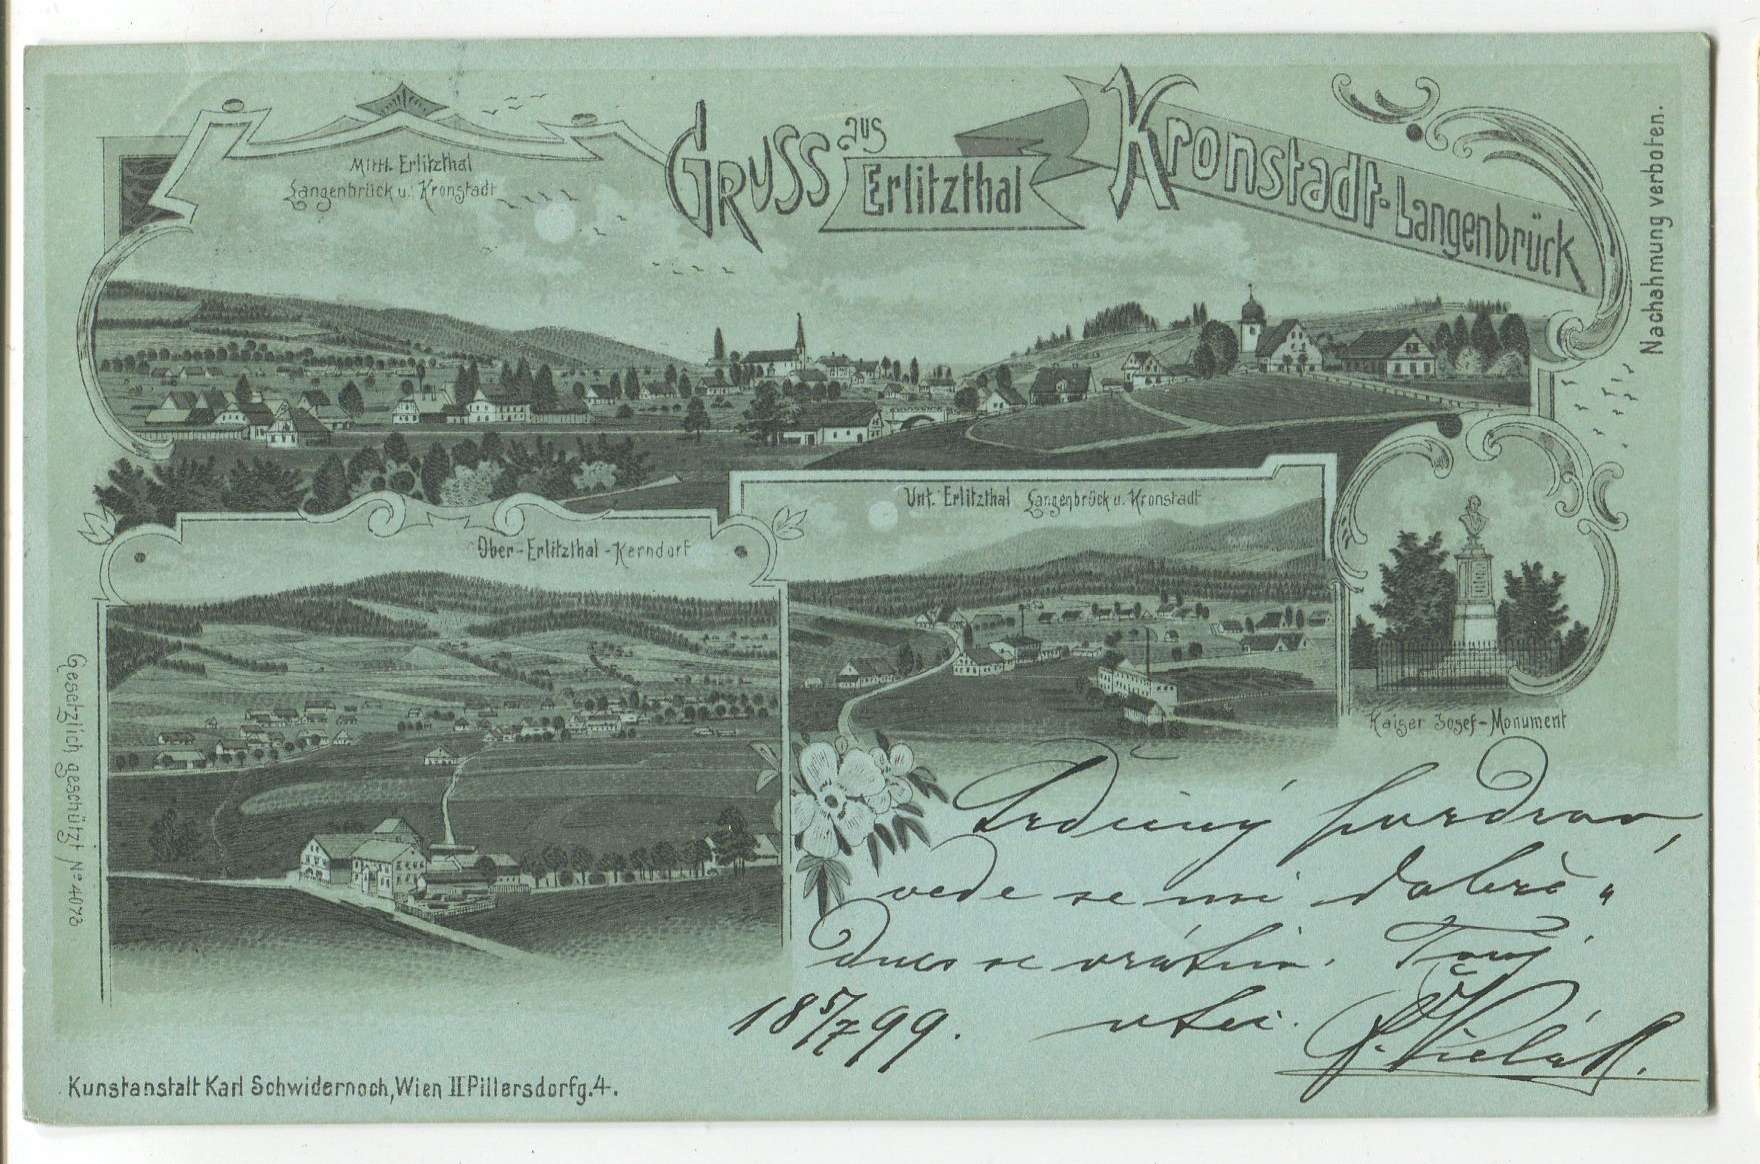 GRUSS aus Erlitzthal Kronstadt-Langenbrück
Nachahmung verboten.
Mittl. Erlitzthal
Langenbrück u. Kronstadt
Ober-Erlitzthal-Kerndorf
Unt. Erlitzthal Langenbrück u. Kronstadt
Kaiser Josef-Monument
Gesetzlich geschützt No 4073
Srdečný pozdrav,
vede se mi dobře,
dnes se vrátím. Tvůj
18 5/7 99.
Kunstanstalt Karl Schwidernoch, Wien II Pillersdorfg. 4.